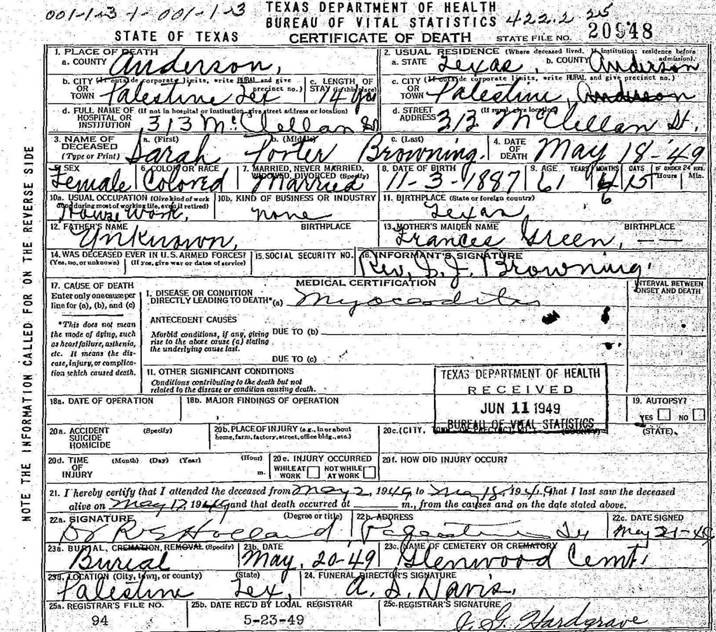 001-13-1-001-1-3 TEXAS DEPARTMENT OF HEALTH
BUREAU OF VITAL STATISTICS 422.2 25
STATE OF TEXAS CERTIFICATE OF DEATH STATE FILE NO. 20948
NOTE THE INFORMATION CALLED FOR ON THE REVERSE SIDE
1. PLACE OF DEATH 2. USUAL RESIDENCE (Where deceased lived. If institution: residence before admission).
a. COUNTY Anderson, a. STATE Texas, b. COUNTY Anderson
b. CITY (If outside corporate limits, write RURAL and give precinct no.) c. LENGTH OF STAY (in this place) c. CITY (If outside corporate limits, write RURAL and give precinct no.)
OR TOWN Palestine Tex 14 yrs OR TOWN Palestine, Anderson
d. FULL NAME OF HOSPITAL OR INSTITUTION (If not in hospital or institution, give street address or location) 313 McClellan St d. STREET ADDRESS (If rural, give location) 313 McClellan St.
3. NAME OF DECEASED (Type or Print) a. (First) b. (Middle) c. (Last) 4. DATE OF DEATH
Sarah Porter Browning. May 18-'49
5. SEX 6. COLOR OR RACE 7. MARRIED, NEVER MARRIED, WIDOWED, DIVORCED (Specify) 8. DATE OF BIRTH 9. AGE YEARS MONTHS DAYS IF UNDER 24 HRS. Hours Min.
Female Colored Married 11-3-1887 61 6 15
10a. USUAL OCCUPATION (Give kind of work done during most of working life, even if retired) 10b. KIND OF BUSINESS OR INDUSTRY 11. BIRTHPLACE (State or foreign country)
House Work, none Texas,
12. FATHER'S NAME BIRTHPLACE 13. MOTHER'S MAIDEN NAME BIRTHPLACE
Unknown, Frances Green, —
14. WAS DECEASED EVER IN U.S. ARMED FORCES? (Yes, no, or unknown) (If yes, give war or dates of service) 15. SOCIAL SECURITY NO. 16. INFORMANT'S SIGNATURE
Rev. S. J. Browning.
17. CAUSE OF DEATH MEDICAL CERTIFICATION INTERVAL BETWEEN ONSET AND DEATH
Enter only one cause per line for (a), (b), and (c)
I. DISEASE OR CONDITION DIRECTLY LEADING TO DEATH* (a) Myocarditis
*This does not mean the mode of dying, such as heart failure, asthenia, etc. It means the disease, injury, or complication which caused death.
ANTECEDENT CAUSES
Morbid conditions, if any, giving rise to the above cause (a) stating the underlying cause last.
DUE TO (b)
DUE TO (c)
II. OTHER SIGNIFICANT CONDITIONS
Conditions contributing to the death but not related to the disease or condition causing death.
TEXAS DEPARTMENT OF HEALTH
RECEIVED
JUN 11 1949
BUREAU OF VITAL STATISTICS
18a. DATE OF OPERATION 18b. MAJOR FINDINGS OF OPERATION 19. AUTOPSY?
YES NO
20a. ACCIDENT SUICIDE HOMICIDE (Specify) 20b. PLACE OF INJURY (e.g., in or about home, farm, factory, street, office bldg., etc.) 20c. (CITY, (STATE).
20d. TIME OF INJURY (Month) (Day) (Year) (Hour) m. 20e. INJURY OCCURRED WHILE AT WORK NOT WHILE AT WORK 20f. HOW DID INJURY OCCUR?
21. I hereby certify that I attended the deceased from May 2, 1949, to May 18, 1949, that I last saw the deceased
alive on May 17, 1949 and that death occurred at m., from the causes and on the date stated above.
22a. SIGNATURE (Degree or title) 22b. ADDRESS 22c. DATE SIGNED
Dr R E Holland Palestine May 21-49
23a. BURIAL, CREMATION, REMOVAL (Specify) 23b. DATE 23c. NAME OF CEMETERY OR CREMATORY
Burial May, 20-49 Glenwood Cemt.
23d. LOCATION (City, town, or county) (State) 24. FUNERAL DIRECTOR'S SIGNATURE
Palestine Tex, A. S. Davis.
25a. REGISTRAR'S FILE NO. 25b. DATE REC'D BY LOCAL REGISTRAR 25c. REGISTRAR'S SIGNATURE
94 5-23-49 J. G. Hardgrave